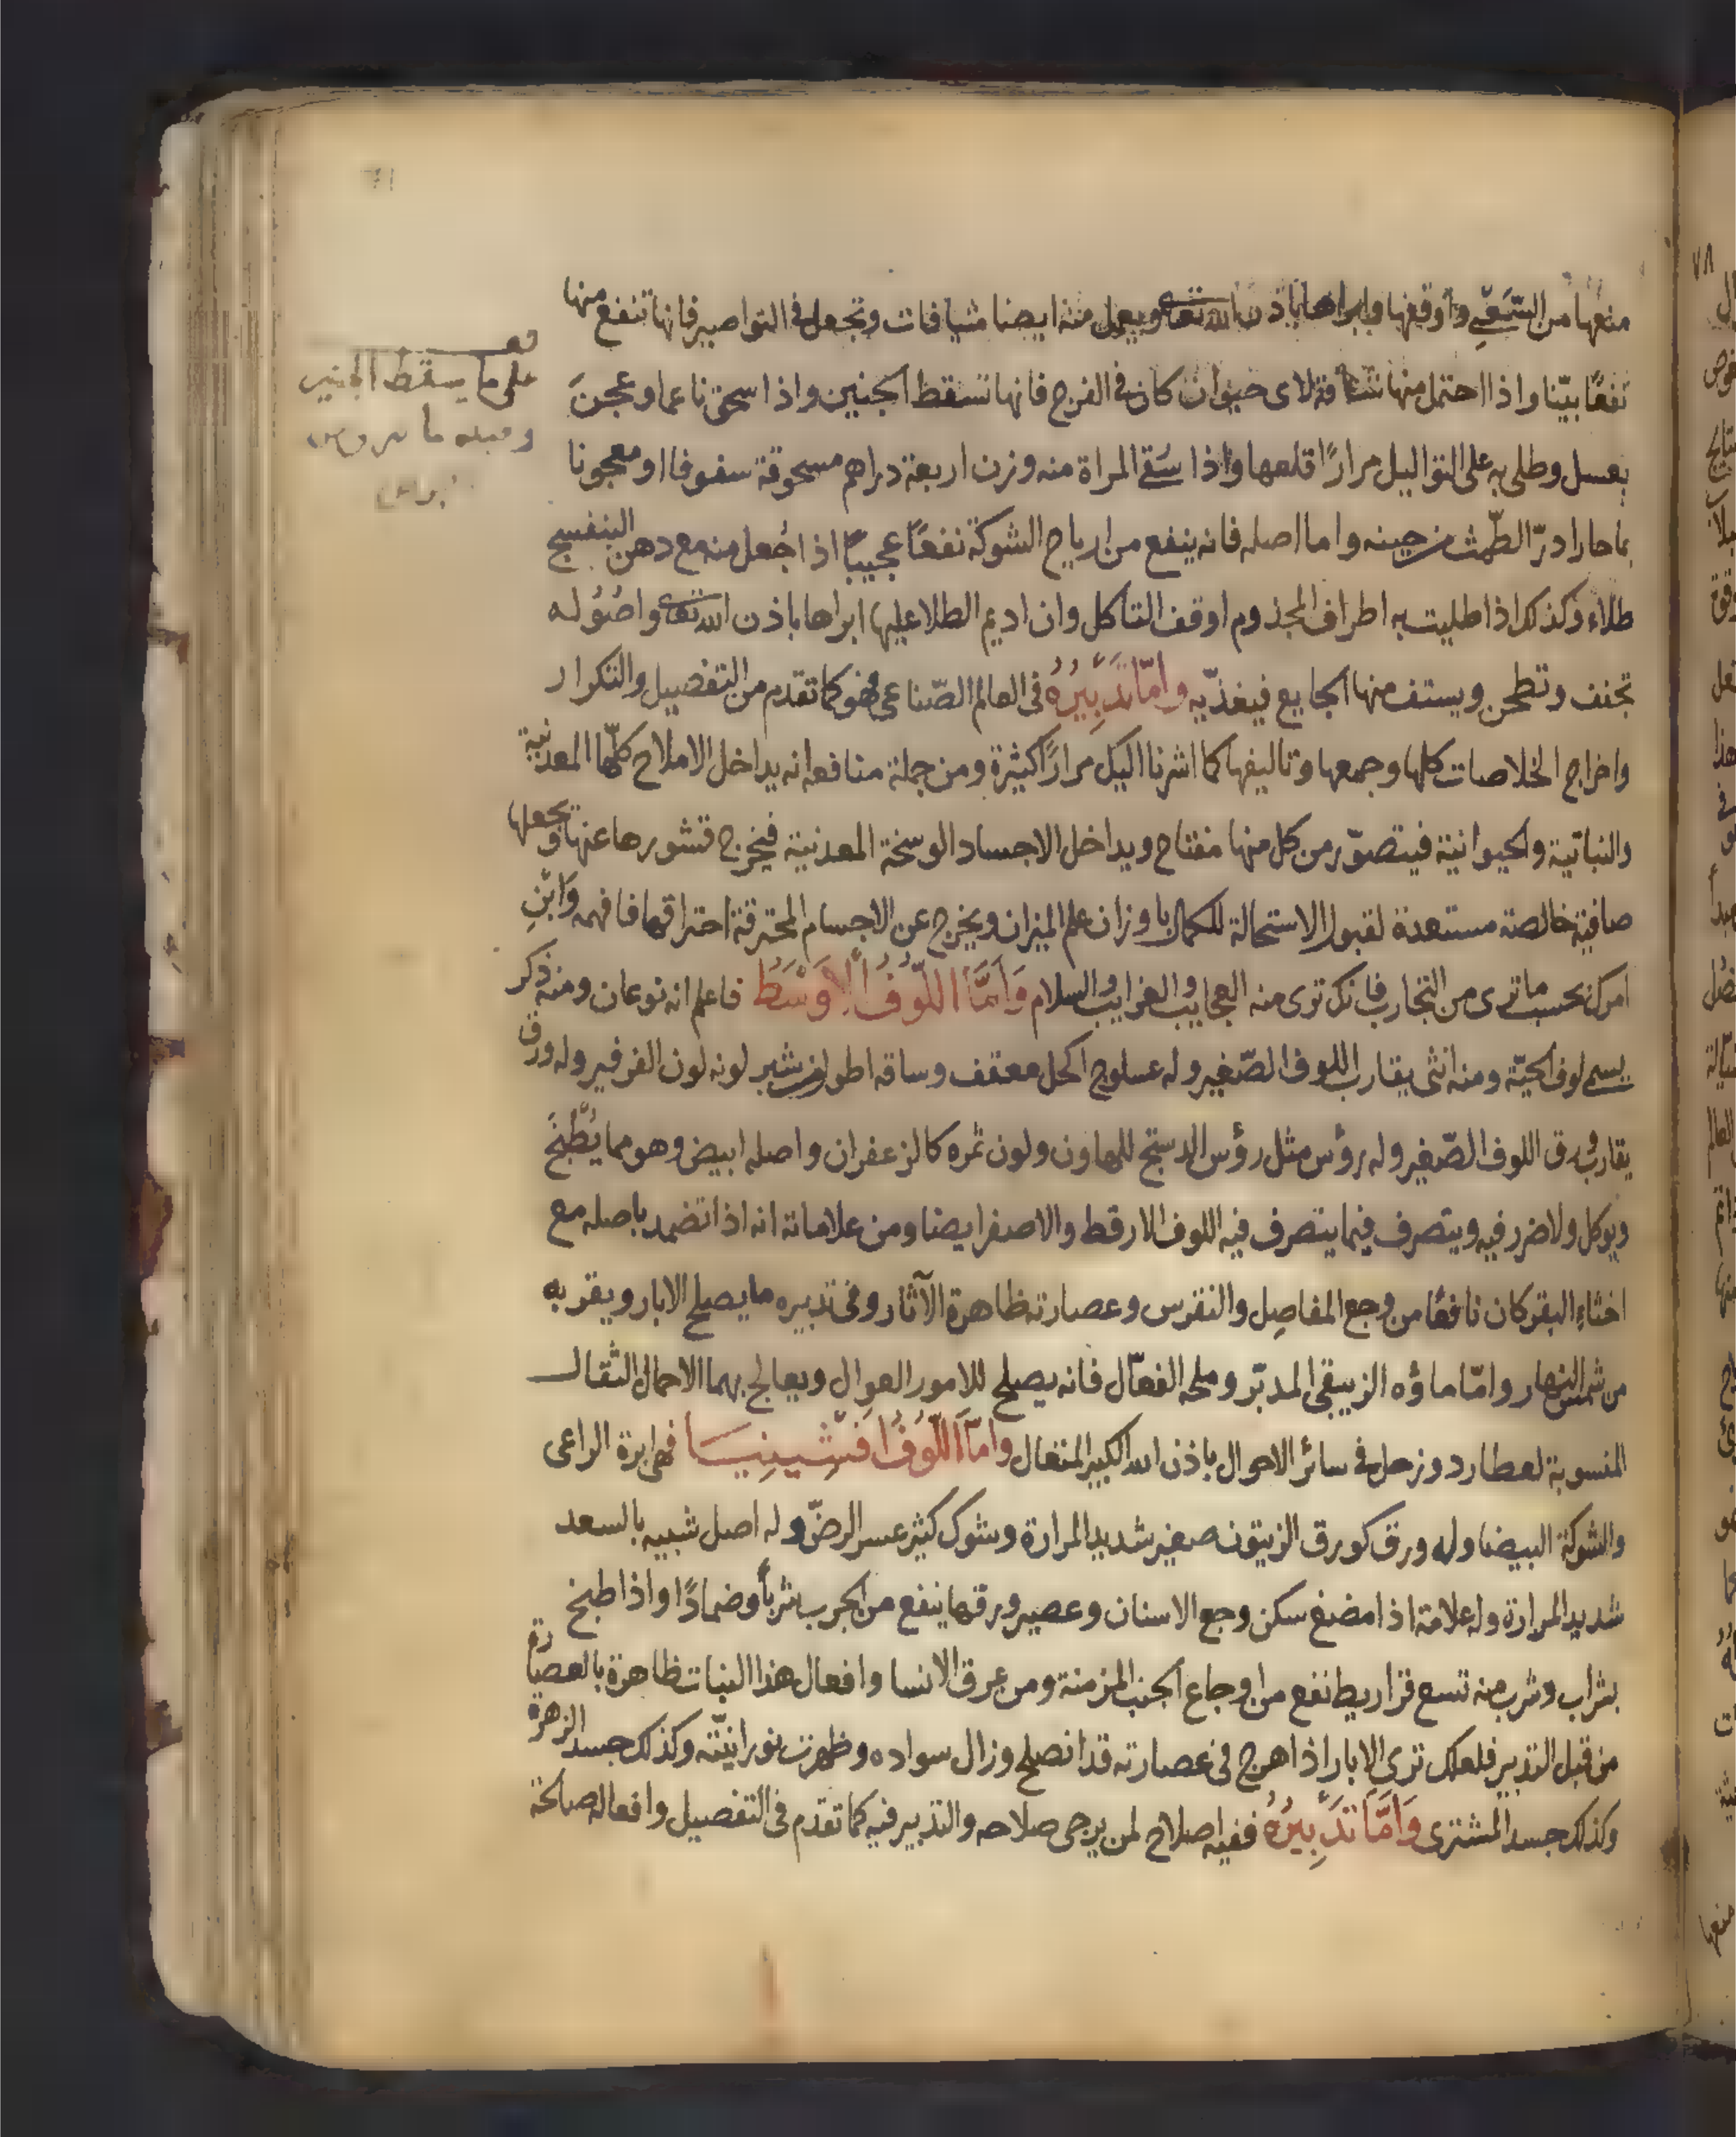 منعها من السّعي واوقفها وابراها باذن الله تعالى ويعمل منه ايضا شيافات وتجعل في النواصير فانها تنفع منها
نفعًا بيّنا واذا احتمل منها شيافة لاى حيوان كان في الفرج فانها تسقط الجنين واذا سحق ناعما وعجن
بعسل وطلى به على التواليل مرارًا قلعها واذا سُقى المراة منه وزن اربعة دراهم مسحوقة سفوفا او معجونا
بما حار ادرّ الطّمث من حينه واما اصله فانه ينفع من ارياح الشوكة نفعًا عجيبًا اذا جُعل منه مع دهن البنفسج
طلاء وكذلك اذا طليت به اطراف المجذوم اوقف التاكل وان اديم الطلا عليها ابراها باذن الله تعالى واصُوله
تجفف وتطحن ويستف منها الجايع فيغذّيه وامّا تدبيرُهُ في العالم الصّناعى فهو كما تقدم من التفصيل والتكرار
واخراج الخلاصات كلها وجمعها وتاليفها كما اشرنا اليك مرارًا كثيرة ومن جملة منافعه انه يداخل الاملاح كلّها المعدنية
والنباتية والحيوانية فيتصوّر من كل منها مفتاح ويداخل الاجساد الوسخة المعدنية فيخرج قشورها عنها وتجعلها
صافية خالصة مستعدة لقبول الاستحالة للكمال باوزان علم الميزان ويخرج عن الاجسام المحترقة احتراقها فافهمه وَابْنِ
امرك بحسب ما ترى من التجارب فانك ترى منه العجايب والغرايب والسلام وَامَّا اللّوُفُ الاوْسَطُ فاعلم انه نوعان ومنه ذكر
يسمى لوف الحيّة ومنه انثى يقارب اللوف الصّغير وله عسلوج اكحل معقف وساقه اطول من شبر لونه لون الفرفير وله ورق
يقارب ورق اللوف الصّغير وله رؤس مثل رؤس الدستج للهاون ولون ثمره كالزعفران واصله ابيض وهو مما يُطْبَخُ
ويوكل ولا ضرر فيه ويتصرف فيما يتصرف فيه اللوف الارقط والاصفر ايضا ومن علاماته انه اذا تضمد باصله مع
اخثاء البقر كان نافعًا من وجع المفاصِل والنقرس وعصارته ظاهرة الآثار وفى تدبيره ما يصلح الابار ويقربه
من شمس النهار وامّا ماؤه الزيبقى المدبّر وملحه الفعّال فانه يصلح للامور العوال ويعالج بهما الاحمال الثقال
المنسوبة لعطارد وزحل في سائر الاحوال باذن الله الكبير المتعال وامّا اللّوُفُ افَشْينيسَا فهى ابرة الراعى
والشوكة البيضا وله ورق كورق الزيتون صغير شديد المرارة وشوك كثير عسر الرضّ وله اصل شبيه بالسعد
شديد المرارة وله علامة اذا مضغ سكن وجع الاسنان وعصير ورقها ينفع من الجرب شربًا وضمادًا واذا طبخ
بشراب وشرب منه تسع قراريط نفع من اوجاع الجنب المزمنة ومن عرق الانسا وافعال هذا النبات ظاهرة بالعصارة
من قبل التدبير فلعلك ترى الابار اذا اهرج فى عصارته قد انصلح وزال سواده وظهرت نورانيّته وكذلك جسد الزهرة
وكذلك جسد المشترى وَامَّا تَدْبيرُهُ ففيه اصلاح لمن يرجى صلاحه والتدبير فيه كما تقدّم فى التفصيل وافعاله صالحة
على ما يسقط الجنين